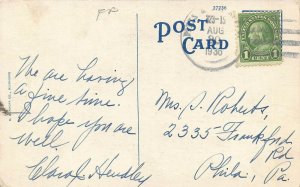 FF
37236
POST
CARD
AUG
1936
1 CENT 1
We are having
a fine time.
I hope you are
well.
Clara Hensley
Mrs. S. Roberts,
2335 Frankford
Rd
Phila, Pa.